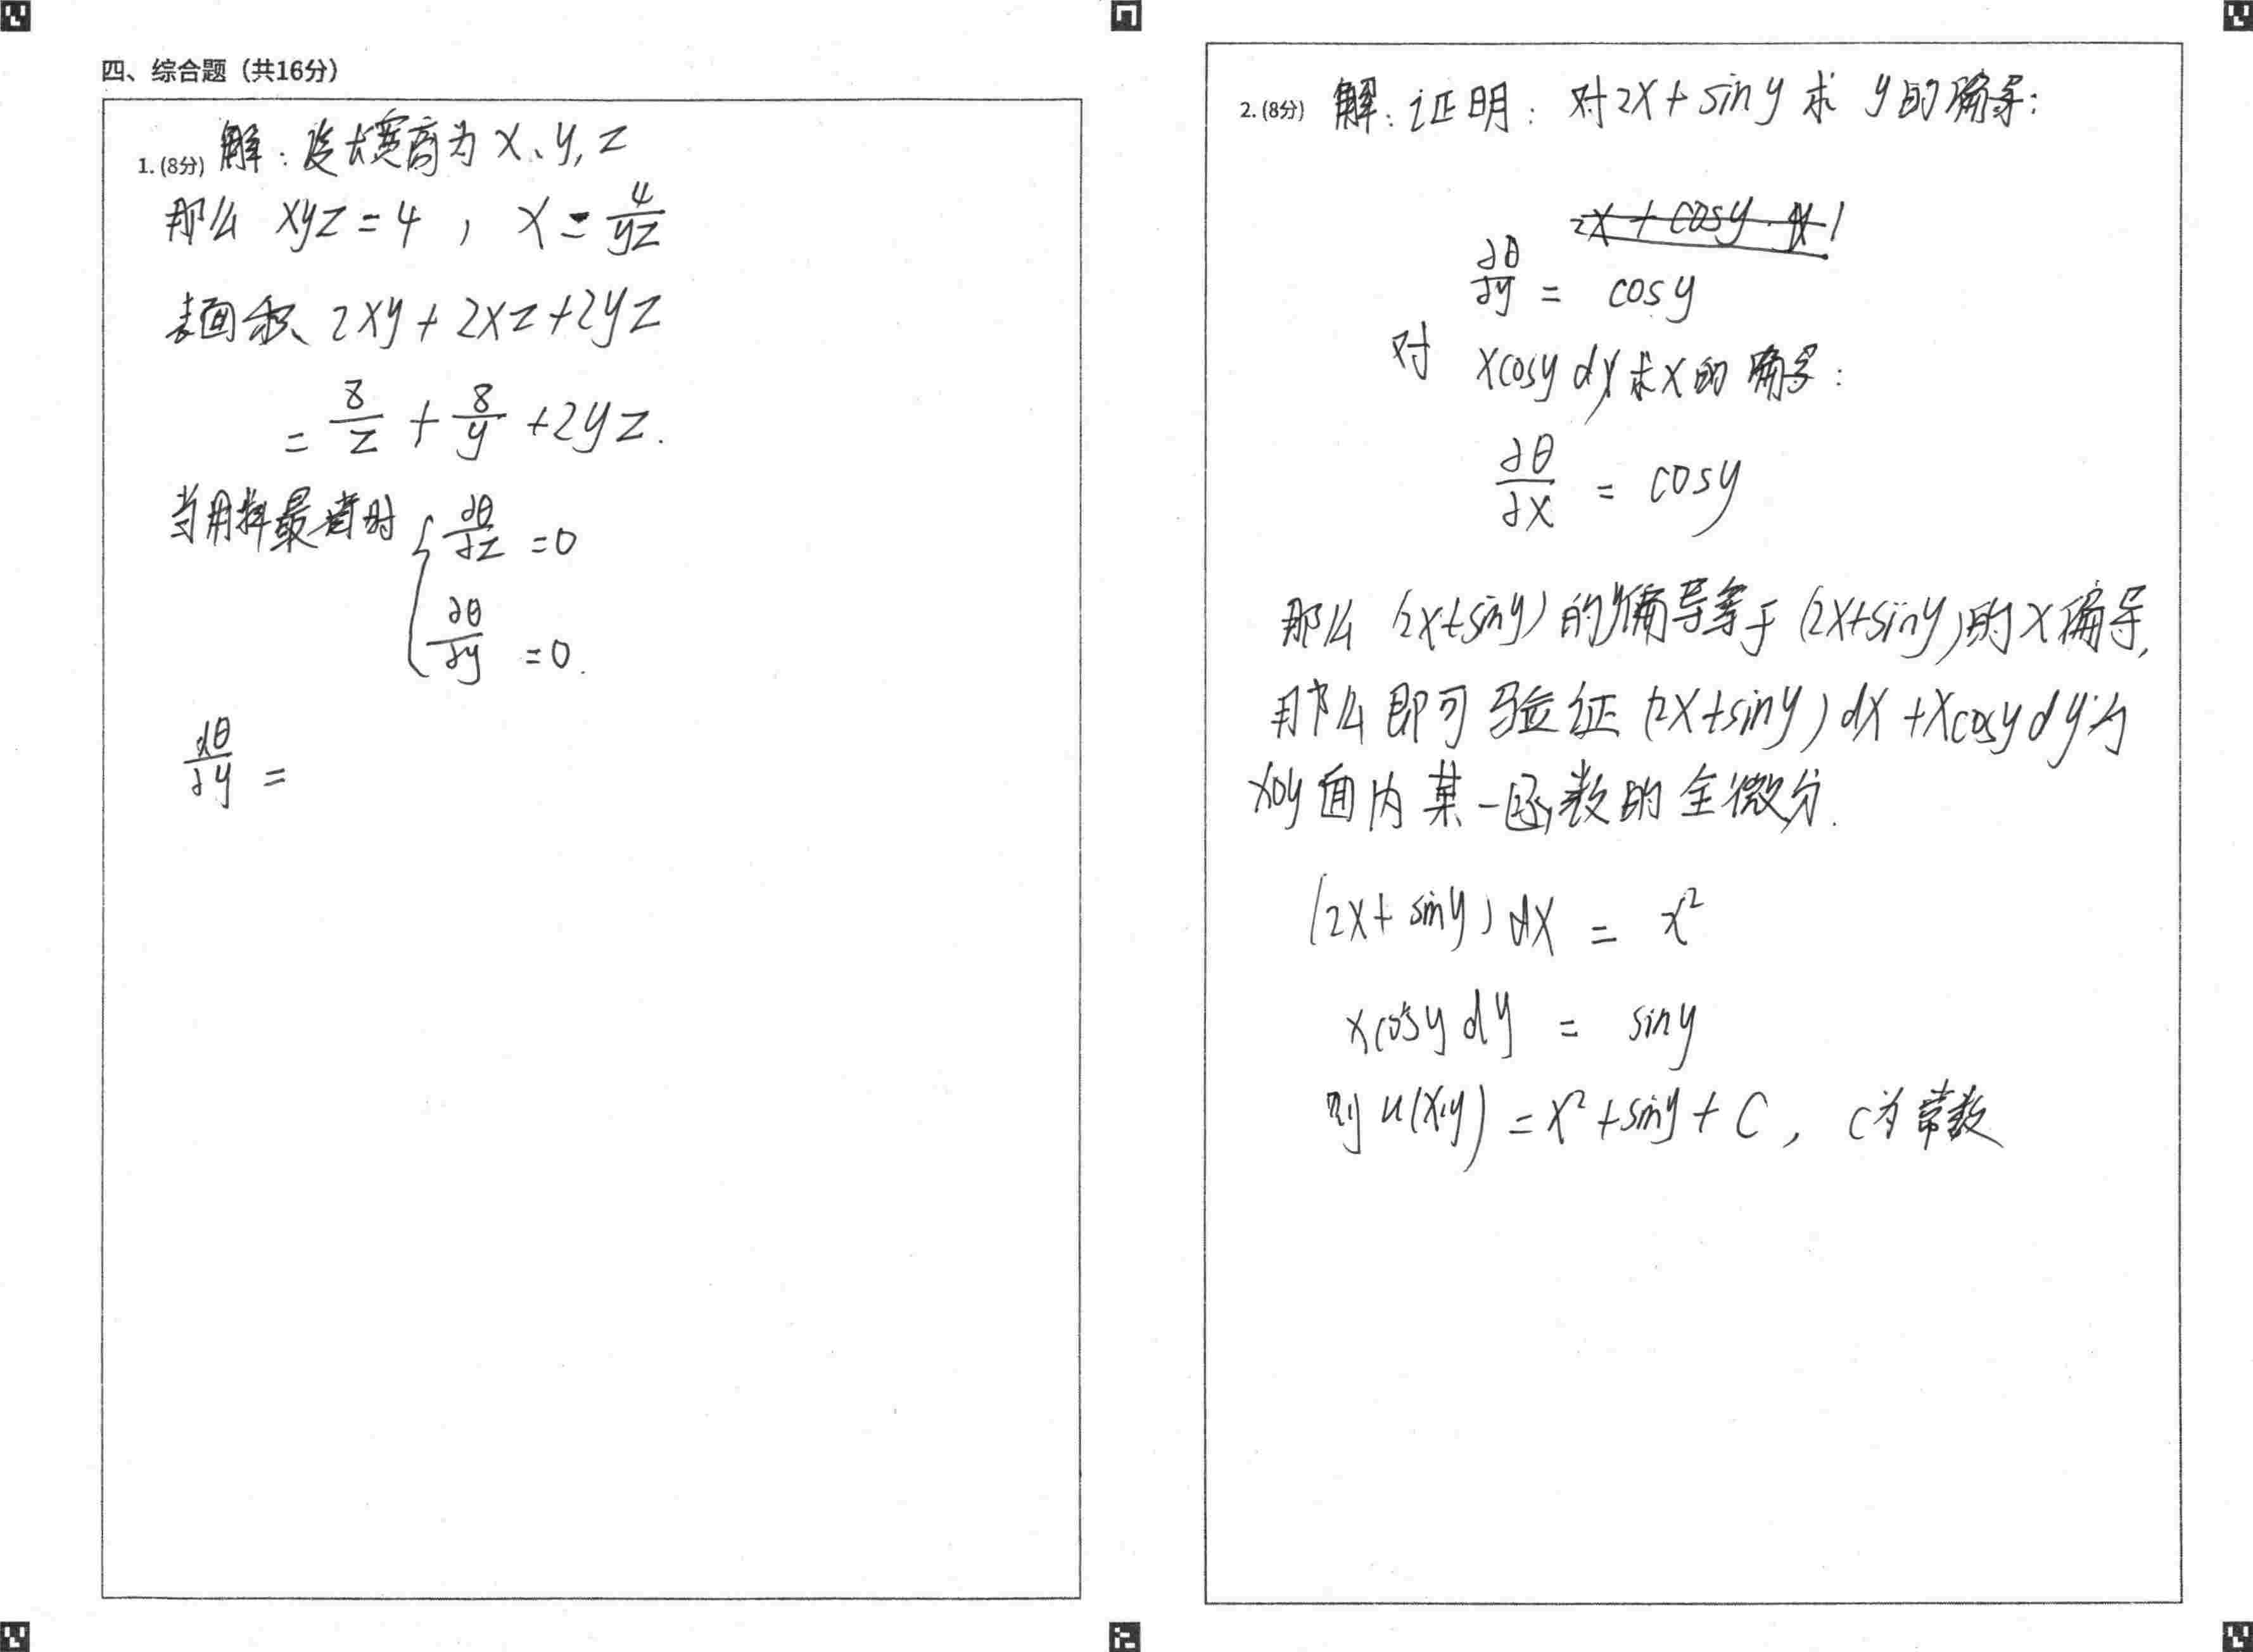 四、综合题（共16分）
1. (8分) 解：设长宽高为 x、y, z
那么 xyz = 4 , x = 4/yz
表面积 2xy + 2xz + 2yz
= 8/z + 8/y + 2yz.
当用料最省时 { ∂θ/∂z = 0
∂θ/∂y = 0.
∂θ/∂y =
2. (8分) 解：证明：对 2x + sin y 求 y 的偏导：
∂θ/∂y = cos y
对 xcosy dy 求 x 的偏导：
∂θ/∂x = cos y
那么 (2x+siny) 的 y 偏导等于 (2x+siny) 的 x 偏导,
那么即可验证 (2x+siny) dx + xcosy dy 为
xoy 面内某一函数的全微分.
(2x + siny) dx = x²
xcosy dy = siny
则 u(x,y) = x² + siny + C , C为常数